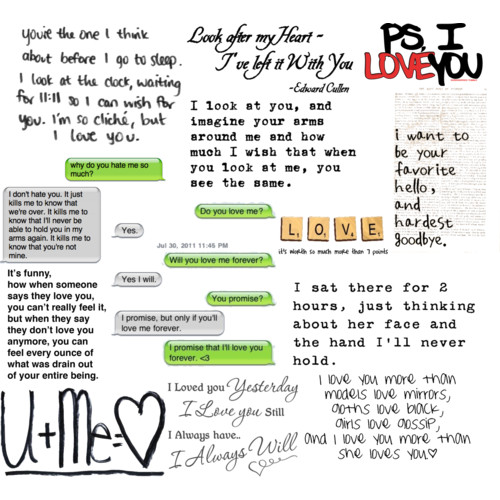 you're the one I think
about before I go to sleep.
I look at the clock, waiting
for 11:11 so I can wish for
you. I'm so cliché, but
I love you.
Look after my Heart -
I've left it With You
-Edward Cullen
PS, I
LOVE YOU
I look at you, and
imagine your arms
around me and how
much I wish that when
you look at me, you
see the same.
i want to
be your
favorite
hello,
and
hardest
goodbye.
why do you hate me so
much?
I don't hate you. It just
kills me to know that
we're over. It kills me to
know that I'll never be
able to hold you in my
arms again. It kills me to
know that you're not
mine.
Do you love me?
Yes.
Jul 30, 2011 11:45 PM
Will you love me forever?
Yes I will.
You promise?
I promise, but only if you'll
love me forever.
I promise that I'll love you
forever. <3
L O V E
it's worth so much more than 7 points
It's funny,
how when someone
says they love you,
you can't really feel it,
but when they say
they don't love you
anymore, you can
feel every ounce of
what was drain out
of your entire being.
I sat there for 2
hours, just thinking
about her face and
the hand I'll never
hold.
U+Me=♡
I Loved you Yesterday
I Love you Still
I Always have..
I Always Will
I love you more than
models love mirrors,
goths love black,
girls love gossip,
and I love you more than
she loves you♡